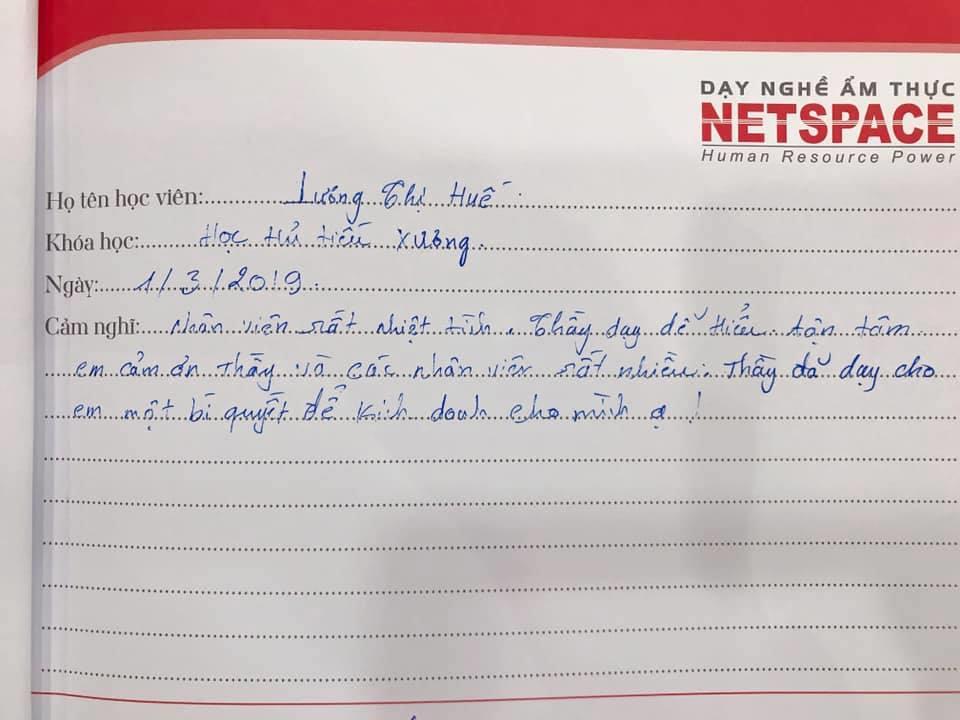 DẠY NGHỀ ẨM THỰC
NETSPACE
Human Resource Power
Họ tên học viên: Lương Thị Huế
Khóa học: Học Hủ tiếu xương.
Ngày: 1/3/2019.
Cảm nghĩ: nhân viên rất nhiệt tình. Thầy dạy dễ hiểu tận tâm
em cảm ơn Thầy và các nhân viên rất nhiều. Thầy đã dạy cho
em một bí quyết để kinh doanh cho mình ạ!